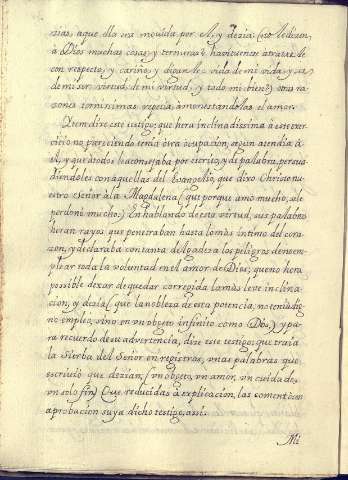 sias, aque ella era movida por el, y dezia: (no le dexen,
a Dios muchas cosas, y ternuras, habituense a tratarle
con respecto, y cariño, y diganle vida de mi vida, y ser
de mi ser, virtud de mi virtud, y todo mi bien) otras ra
zones ternisimas repetia, amonestandolas el amor.
Item dixe este testigo: que hera inclinadissima a este exer
cicio no pareciendo tenia otra ocupacion, a quien atendia à
el, y que à todos le aconsejaba por escrito, y de palabra, persua
diendoles con aquellas del Evangelio, que dixo Christo nu
estro Señor à la Magdalena (que porque amo mucho, se le
perdono mucho.) En hablando de esta virtud, sus palabras
heran rayos, que penetraban hasta lo mas intimo del cora
zon, y declaraba con tanta delgadeza los peligros de no em
plear toda la voluntad en el amor de Dios; que no hera
posible dexar de quedar corregida la mas leve inclina
cion, y dezia (que la nobleza de esta potencia, no tenia dig
no empleo, sino en un objeto infinito como Dios,) y pa
ra recuerdo de su advertencia, dize este testigo; que traia
la Sierba del Señor en registros, unas palabras que
escriuio que dezian, (un objeto, un amor, un cuidado,
un solo fin) Que reducidas a explicacion, las comentò con
aprobacion suya dicho testigo, asi.
Mi